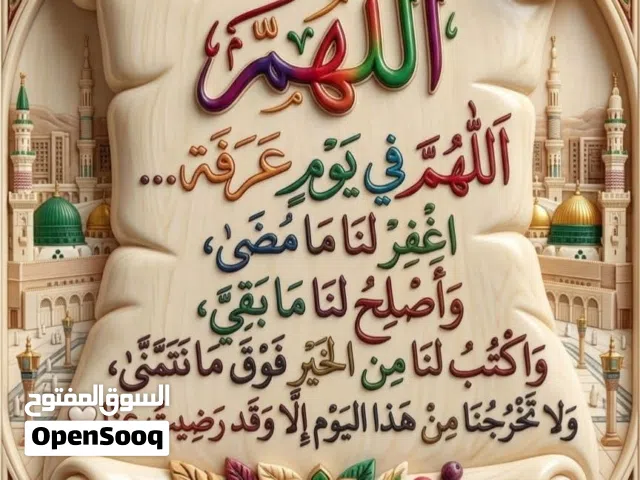 اللهمّ
اَللّٰهُمَّ في يَوْمٍ عَرَفَة...
اغْفِرْ لنَا مَا مُضَىٰ،
وَأَصْلِحُ لنَا مَا بَقِيَّ،
وَاكْتُبُ لنَا مِن الخَيْرِ فَوْقَ مَا نَتَمَنَّىٰ،
وَلا تَخْرُجْنَا مِنْ هَذا اليَوْمِ إلَّا وَقَد رَضِيتَ
السوق المفتوح
OpenSooq